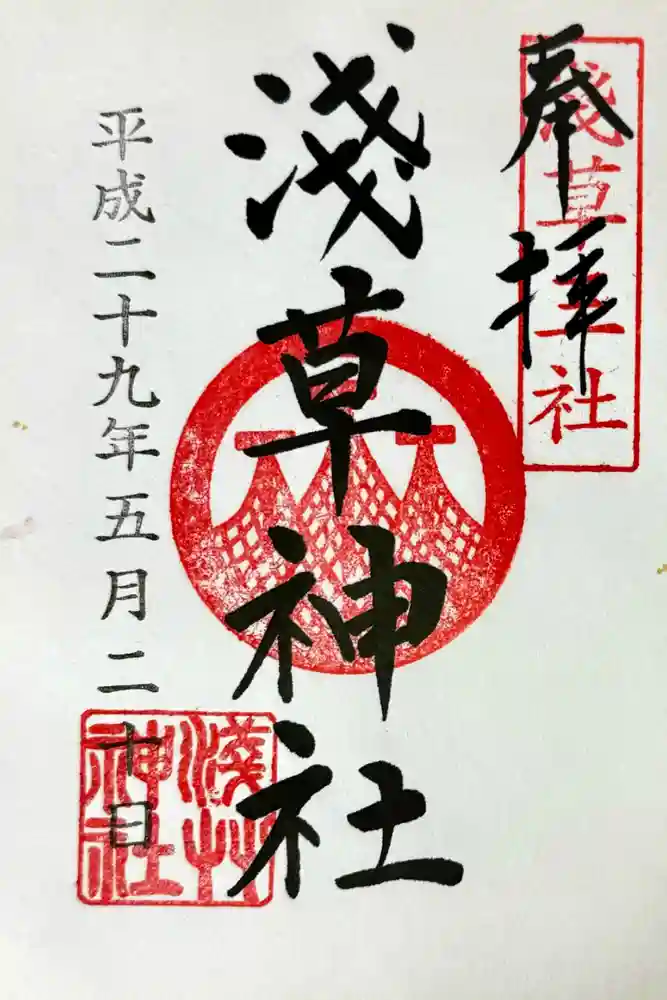 奉拝
淺草神社
淺草神社
平成二十九年五月二十日
淺草神社